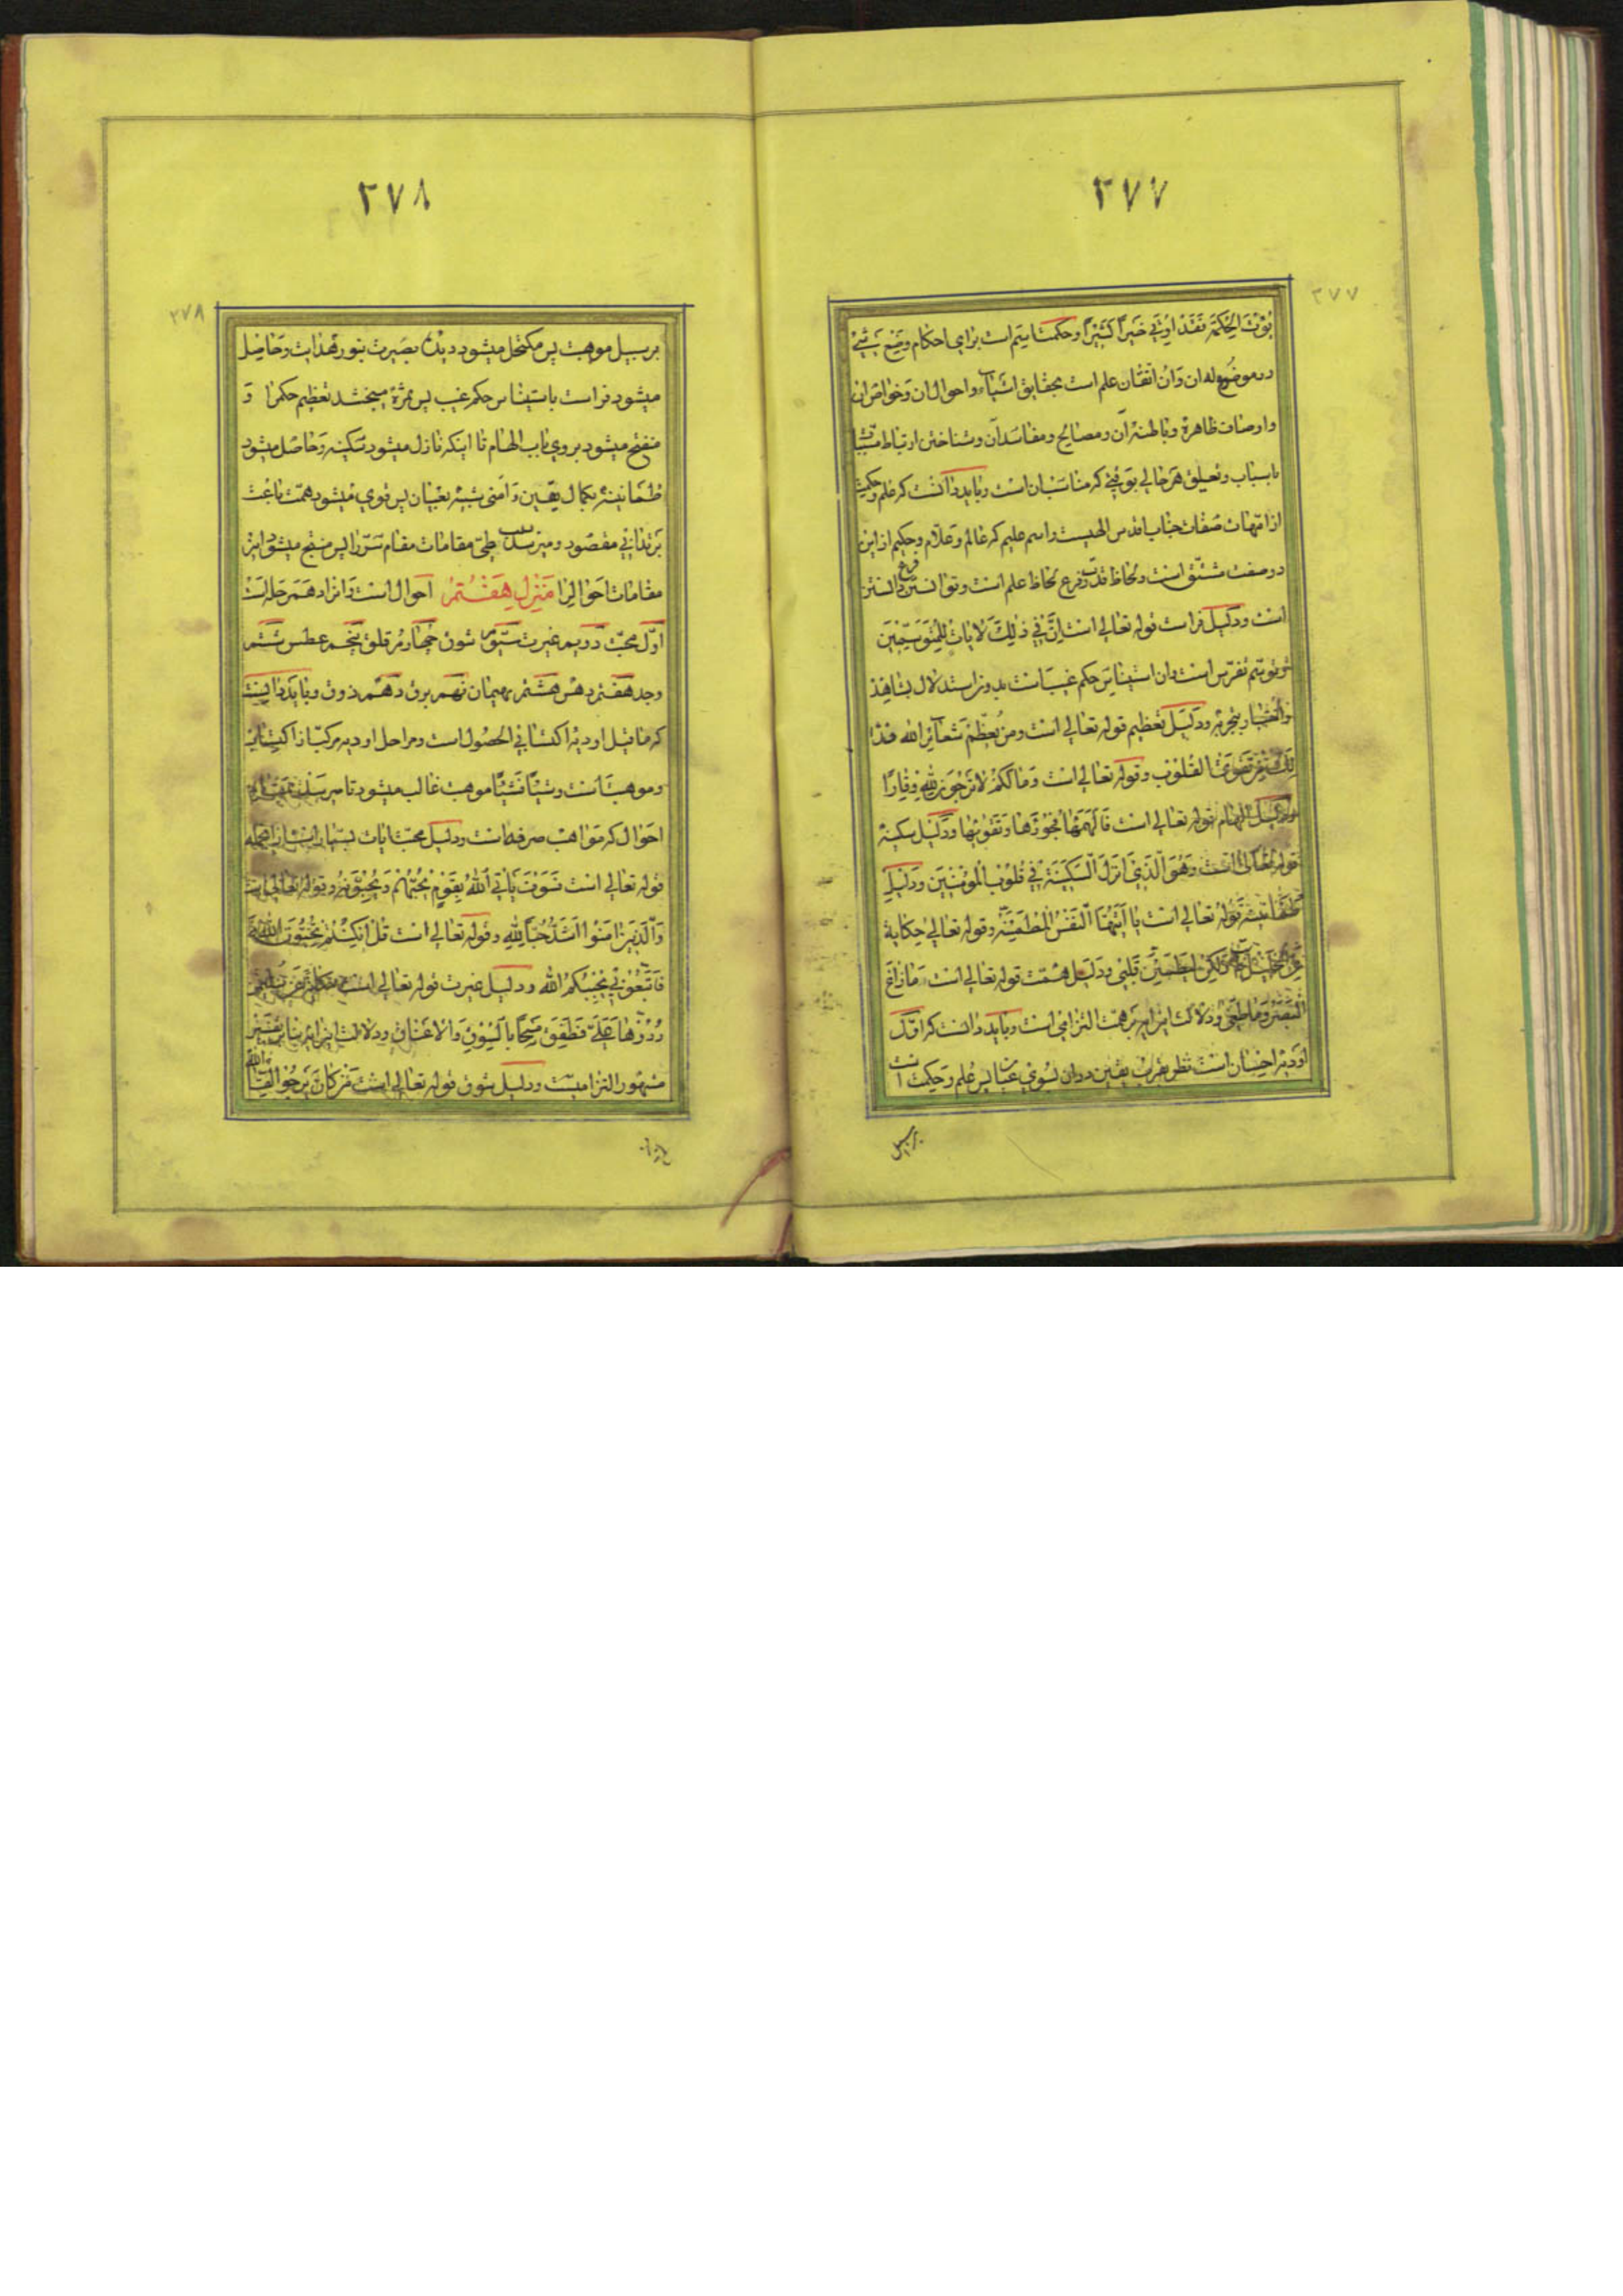 ۲۷۷
۲۷۷
یؤت الحکمة فقد اوتی خیراً کثیراً و حکمت اسم است برای احکام وضع شیئ
در موضوع له ان و ان اتقان علم است بحقایق اشیاء و احوال ان و خواص ان
و اوصاف ظاهره و باطنه ان و مصالح و مفاسد ان و شناختن ارتباط مسببات
باسباب و تعلیق هر حالی بوقتی که مناسب ان است و باید دانست که علم و حکمت
از امهات صفات جناب اقدس الهیست و اسم علیم که عالم و علام و حکیم از این
دو صفت مشتق است و لحاظ قدرت فرع لحاظ علم است و توانستن فرع دانستن
است و دلیل فراست قوله تعالی است ان فی ذلک لایات للمتوسمین
توسم تفرس است و ان استیناس حکم غیب است بدون استدلال بشاهد
و اختبار بتجربه و دلیل تعظیم قوله تعالی است و من یعظم شعائر الله فذا
لک من تقوی القلوب و قوله تعالی است و مالکم لا ترجون لله وقارا
و دلیل الهام قوله تعالی است فالهمها فجورها و تقویها و دلیل سکینه
قوله تعالی است و هو الذی انزل السکینة فی قلوب المؤمنین و دلیل
طمانینه قوله تعالی است یا ایتها النفس المطمئنة و قوله تعالی حکایة
عن خلیل لکن لیطمئن قلبی و دلیل همت قوله تعالی است ما زاغ
البصر و ما طغی و دلالت این ایه بر همت التزامی است و باید دانست که اول
اودیه احسان است نظر بقرب یقین در ان بسوی عیان پس علم و حکمت است
بر سبیل
۲۷۸
۲۷۸
بر سبیل موهبت پس مکتحل میشود دیده بصیرت بنور هدایت و حاصل
میشود فراست باستیناس حکم غیب پس ثمره میبخشد تعظیم حکم را و
منفتح میشود بروی باب الهام تا اینکه نازل میشود سکینه و حاصل میشود
طمانینه بکمال یقین و امنی شبیه بعیان پس قوی میشود همت باعث
بر تدانی مقصود و میرسد طی مقامات مقام سر را پس منتج میشود این
مقامات احوال را منزل هفتم احوال است و انرا ده مرحله است
اول محبت دویم غیرت سیم شوق چهارم قلق پنجم عطش ششم
وجد هفتم دهش هشتم هیمان نهم برق دهم ذوق و باید دانست
که ما قبل اودیه اکتسابی الحصول است و مراحل اودیه مرکب از اکتساب
و موهبت است و شیئاً فشیئاً موهبت غالب میشود تا میرسد بمقام
احوال که مواهب صرفه است و دلیل محبت ایات بسیار است از انجمله
قوله تعالی است فسوف یاتی الله بقوم یحبهم و یحبونه و قوله تعالی است
و الذین امنوا اشد حباً لله و قوله تعالی است قل ان کنتم تحبون الله
فاتبعونی یحببکم الله و دلیل غیرت قوله تعالی است حکایة عن سلیم
ردوها علی فطفق مسحاً بالسوق و الاعناق و دلالت این ایه بنا بر تفسیر
مشهور التزامیست و دلیل شوق قوله تعالی است من کان یرجو لقاء الله